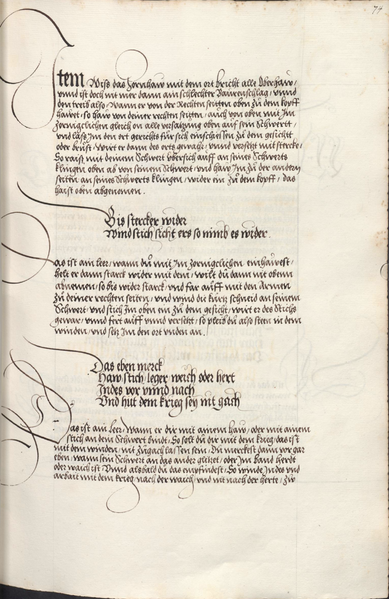 74
Item Wiß das Zornhaw mit dem ort bricht alle Oberhaw
vnnd ist doch nit mer dann ain schlechter Pauren schlag, vnnd
den treib also, Wann er von der Rechten seitten oben Zu dem kopff
hawet, so haw von deiner rechten seitten, auch von oben mit Im
Zornigclichen gleich on alle versatzung oben auf sein Schwert,
vnd laß Im den ort gerichts für sich einschiessen Zu dem gesicht
oder brust, Wirt er dann des orts gewar, vnnd versetzt mit stercke,
So raiß mit deinem Schwert Vbersich auff an seines Schwerts
klingen, oben ab von seinem Schwert, vnd haw Im Zu der andern
seitten an seines Schwerts klingen, wider ein Zu dem kopff, das
haist oben abgenomen.
Bis stercker wider
Wind stich sicht ers so nimb es nider
Das ist ain leer, wann du Im Zornigclichen einhawest,
helt er dann starck wider mit dem, wilt du dann nit oben
abnemen, so bis wider starck, vnd far auff mit den Armen
Zu deiner rechten seitten, vnd wind die kurtz schneid an seinem
Schwert, vnd stich Im oben ein Zu dem gesicht, wirt er des Stichs
gewar, vnnd fert auff vnnd versetzt, so pleib du also steen in dem
winden, vnd setz Im den ort vnden an.
Das eben merck
Haw stich leger waich oder hert
Indes vor vnnd nach
Vnd hut dem krieg sey nit gach
Das ist ain leer, Wann er dir mit ainem haw, oder mit ainem
stich an dein Schwert bindt, So solt du dir mit dem krieg, das ist
mit dem winden, nit Zu gach lassen sein, Du merckest dann vor gar
eben, wann sein Schwert an das ander glitzt, ober Im band herdt
oder waich ist Vnnd alsbald du das empfindest, So winde Indes vnd
arbait mit dem krieg, nach der waich, vnd nit nach der herte, Zu